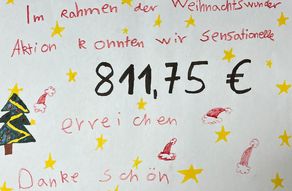 Im Rahmen der Weihnachtswunder
Aktion konnten wir sensationelle
811,75 €
erreichen
Danke schön